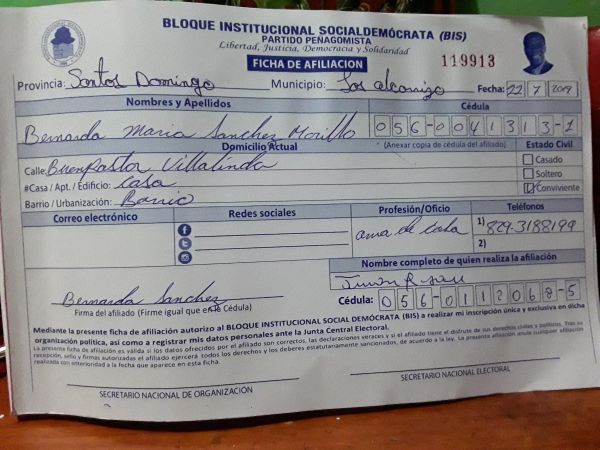 BLOQUE INSTITUCIONAL SOCIALDEMÓCRATA (BIS)
PARTIDO PEÑAGOMISTA
Libertad, Justicia, Democracia y Solidaridad
FICHA DE AFILIACION
119913
Provincia: Santos Domingo Municipio: Los alcarrizo Fecha: 22 7 2019
Nombres y Apellidos Cédula
Bernarda Maria Sanchez Morillo 056-0041313-1
Domicilio Actual (Anexar copia de cédula del afiliado) Estado Civil
Calle: Buen Pastor Villalinda Casado
#Casa / Apt. / Edificio: Casa Soltero
Barrio / Urbanización: Barrio Conviviente
Correo electrónico Redes sociales Profesión/Oficio Teléfonos
ama de Casa 1) 829-3188199
2)
Nombre completo de quien realiza la afiliación
Bernarda Sanchez
Firma del afiliado (Firme igual que en la Cédula) Cédula: 056-0112068-5
Mediante la presente ficha de afiliación autorizo al BLOQUE INSTITUCIONAL SOCIAL DEMÓCRATA (BIS) a realizar mi inscripción única y exclusiva en dicha
organización política, así como a registrar mis datos personales ante la Junta Central Electoral.
La presente ficha de afiliación es válida si los datos ofrecidos por el afiliado son correctos, las declaraciones veraces y si el afiliado tiene el disfrute de sus derechos civiles y políticos. Tras su
recepción, sello y firmas autorizadas el afiliado ejercerá todos los derechos y los deberes estatutariamente sancionados, de acuerdo a la ley. La presente afiliación anula cualquier afiliación
realizada con anterioridad a la fecha que aparece en esta ficha.
SECRETARIO NACIONAL DE ORGANIZACIÓN SECRETARIO NACIONAL ELECTORAL